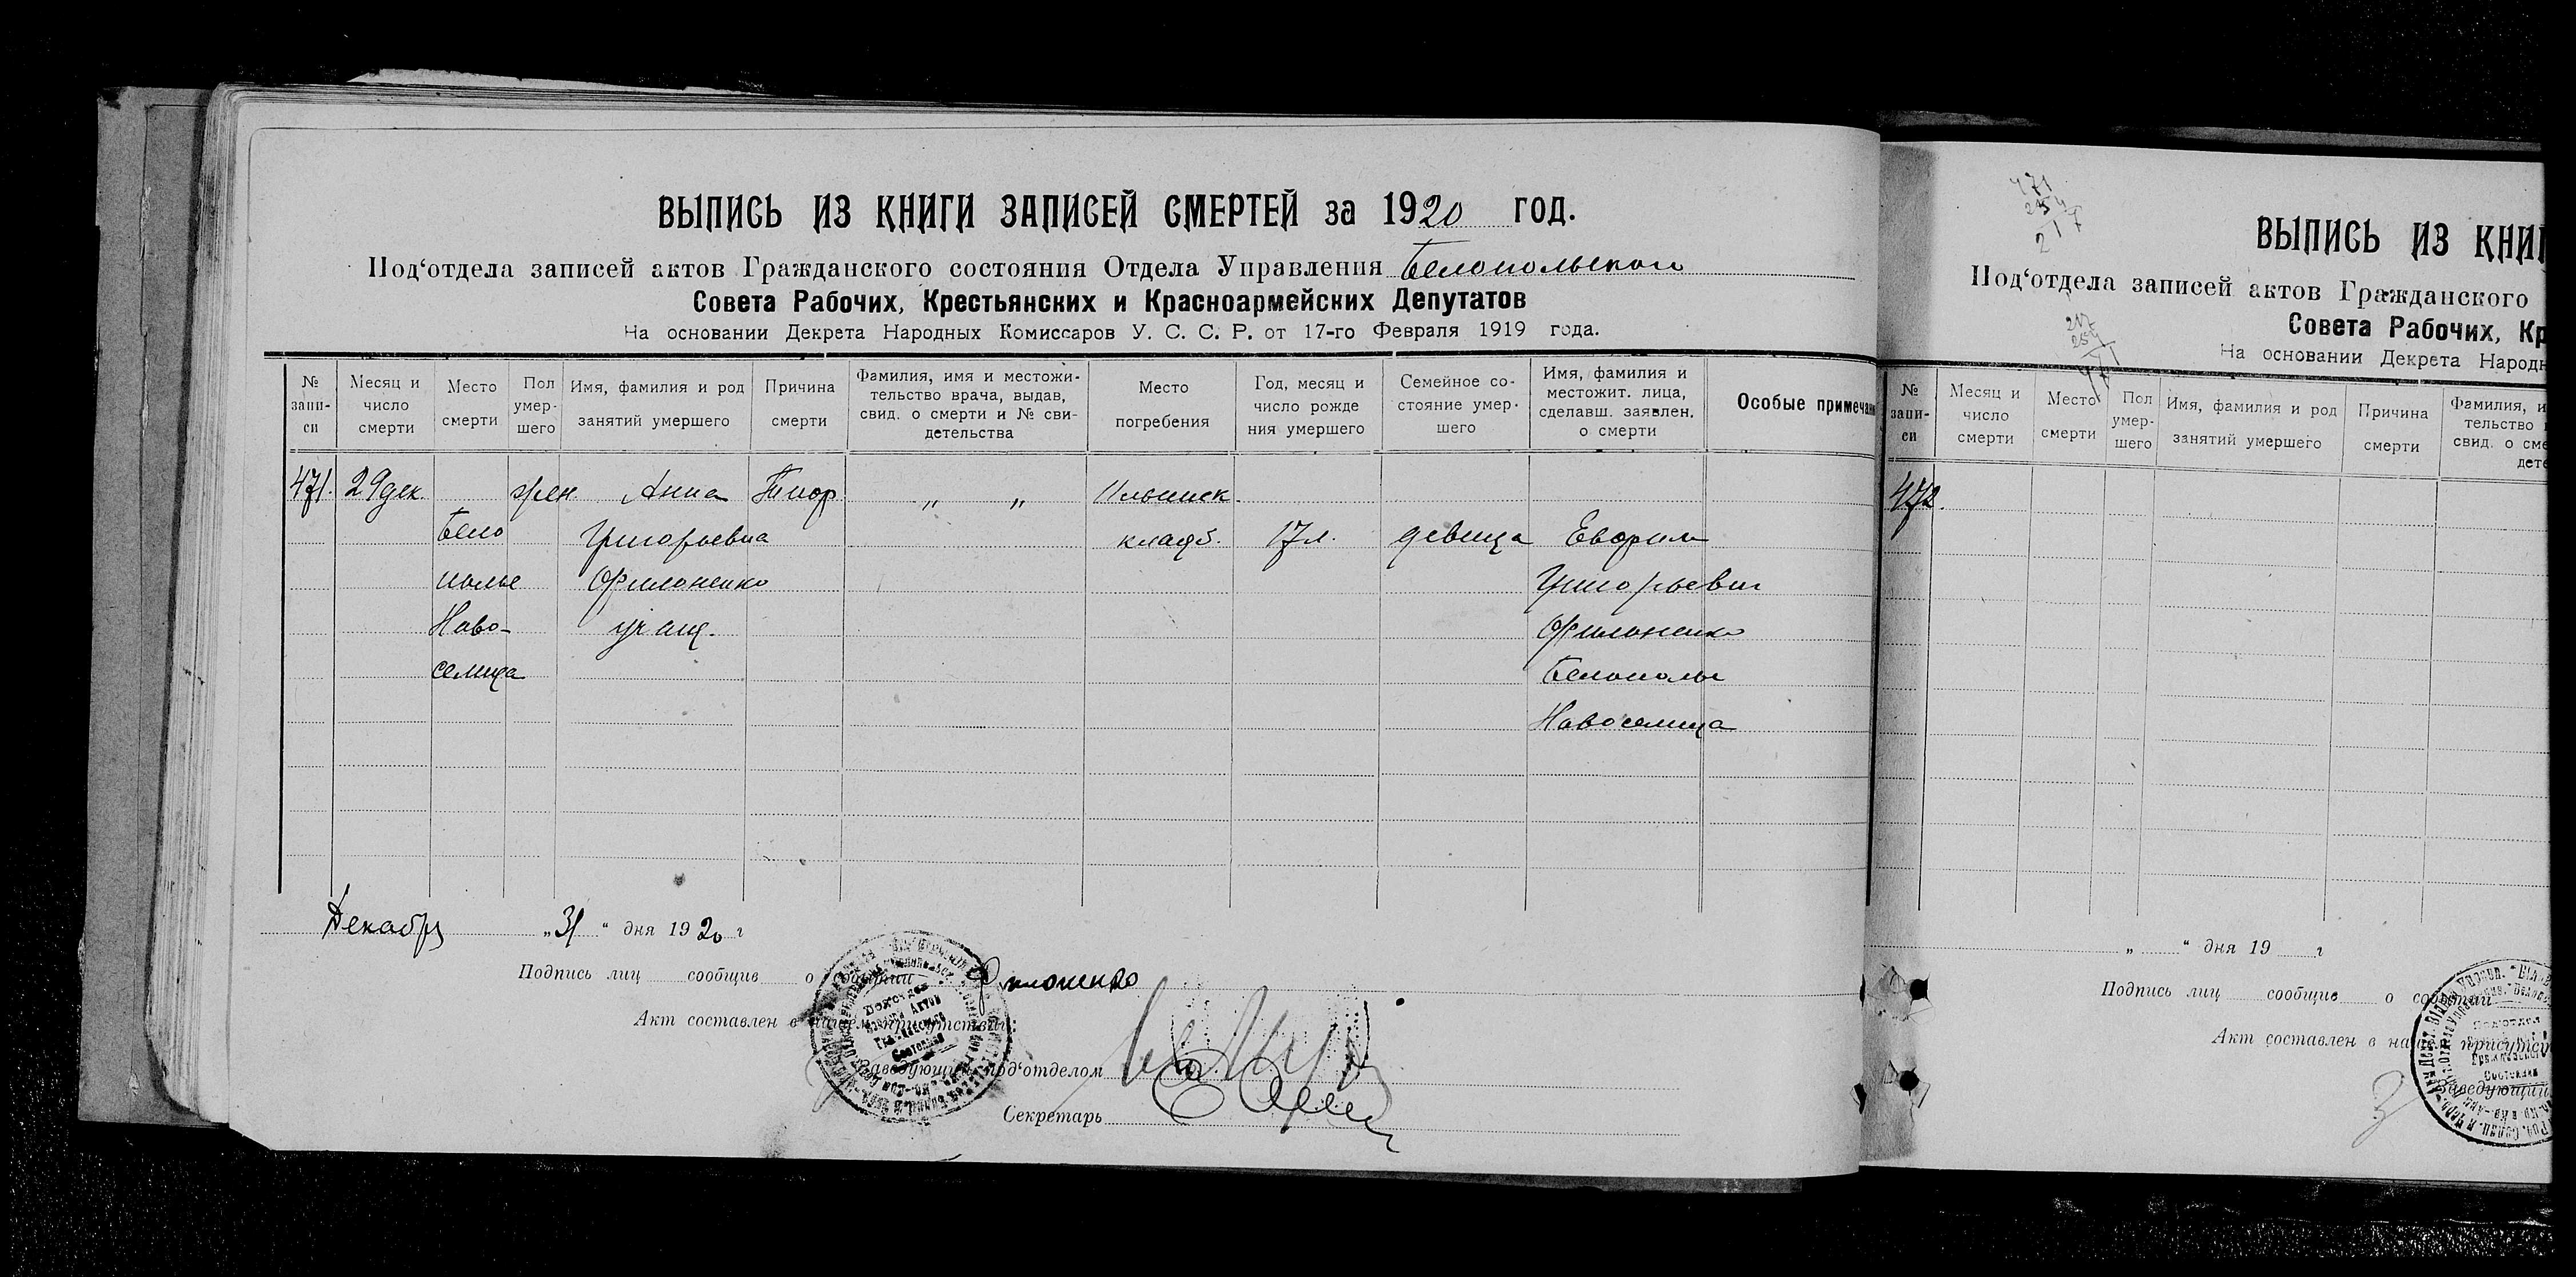 ВЫПИСЬ ИЗ КНИГИ ЗАПИСЕЙ СМЕРТЕЙ за 1920 год.
Под‘отдела записей актов Гражданского состояния Отдела Управления Белопольского
Совета Рабочих, Крестьянских и Красноармейских Депутатов
На основании Декрета Народных Комиссаров У. С. С. Р. от 17-го Февраля 1919 года.
№ запи-си
Месяц и число смерти
Место смерти
Пол умер-шего
Имя, фамилия и род занятий умершего
Причина смерти
Фамилия, имя и местожи-тельство врача, выдав, свид. о смерти и № сви-детельства
Место погребения
Год, месяц и число рожде ния умершего
Семейное со-стояние умер-шего
Имя, фамилия и местожит. лица, сделавш. заявлен. о смерти
Особые примечан
471.
29 дек.
Бело
полье
Ново-
селица
жен
Анна
Григорьевна
Филоненко
учащ.
„ „
кладб.
17 л.
девица
Григорьевич
Филоненко
Белополье
Новоселица
Декабря „31“ дня 1920 г
Подпись лиц сообщив о событии Филоненко
Акт составлен в нашем присутствии:
Заведующий под‘отделом
Секретарь
471
254
217
ВЫПИСЬ ИЗ КНИ
Под‘отдела записей актов Гражданского
217
254
471
Совета Рабочих, Кр
На основании Декрета Народн
№ запи-си
Месяц и число смерти
Место смерти
Пол умер-шего
Имя, фамилия и род занятий умершего
Причина смерти
Фамилия, и
тельство
свид. о сме
дете
472.
„ “ дня 19 г
Подпись лиц сообщив о событии
Акт составлен в нашем присутст
Заведующий
3